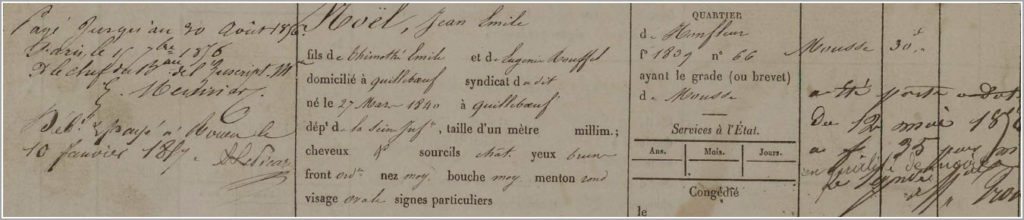 Payé Jusqu'au 30 Août 1856
Paris le 15 7bre 1856
P. le chef du Bau de l'Inscript. M
Meunier
Deb. payé à Rouen le
10 Janvier 1857
Noël, Jean Emile
fils de Thimothé Emile et de Eugenie Rouffel
domicilié à Quillebœuf syndicat du dit
né le 27 Mars 1840 à Quillebœuf
dépt de la Sein Infre, taille d'un mètre millim;
cheveux & sourcils chat. yeux brun
front ordre nez moy. bouche moy menton rond
visage ovale signes particuliers
QUARTIER
d'Honfleur
f° 1839 n° 66
ayant le grade (ou brevet)
de Mousse
Services à l'État.
Ans. Mois. Jours.
Congédié
le
Mousse 30f
a été porté
Du 12 mai 1856
a f 35 par
en qualité de